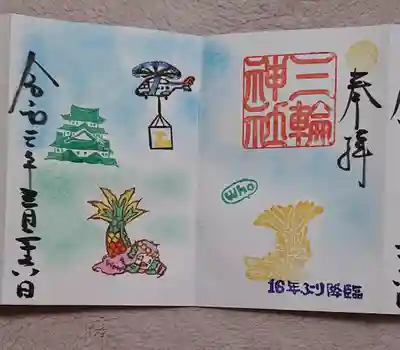 奉拝
三輪
神社
Who
16年ぶり降臨
令和三年三月